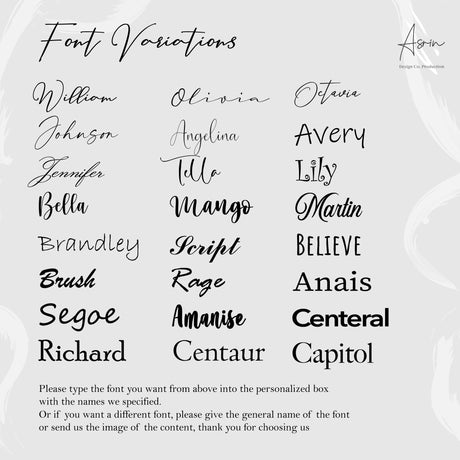 Font Variations
Asrin
Design Co. Promotion
William Olivia Octavia
Johnson Angelina Avery
Jennifer Tella Lily
Bella Mango Martin
Brandley Script BELIEVE
Brush Rage Anais
Segoe Amanise Centeral
Richard Centaur Capitol
Please type the font you want from above into the personalized box
with the names we specified.
Or if you want a different font, please give the general name of the font
or send us the image of the content, thank you for choosing us